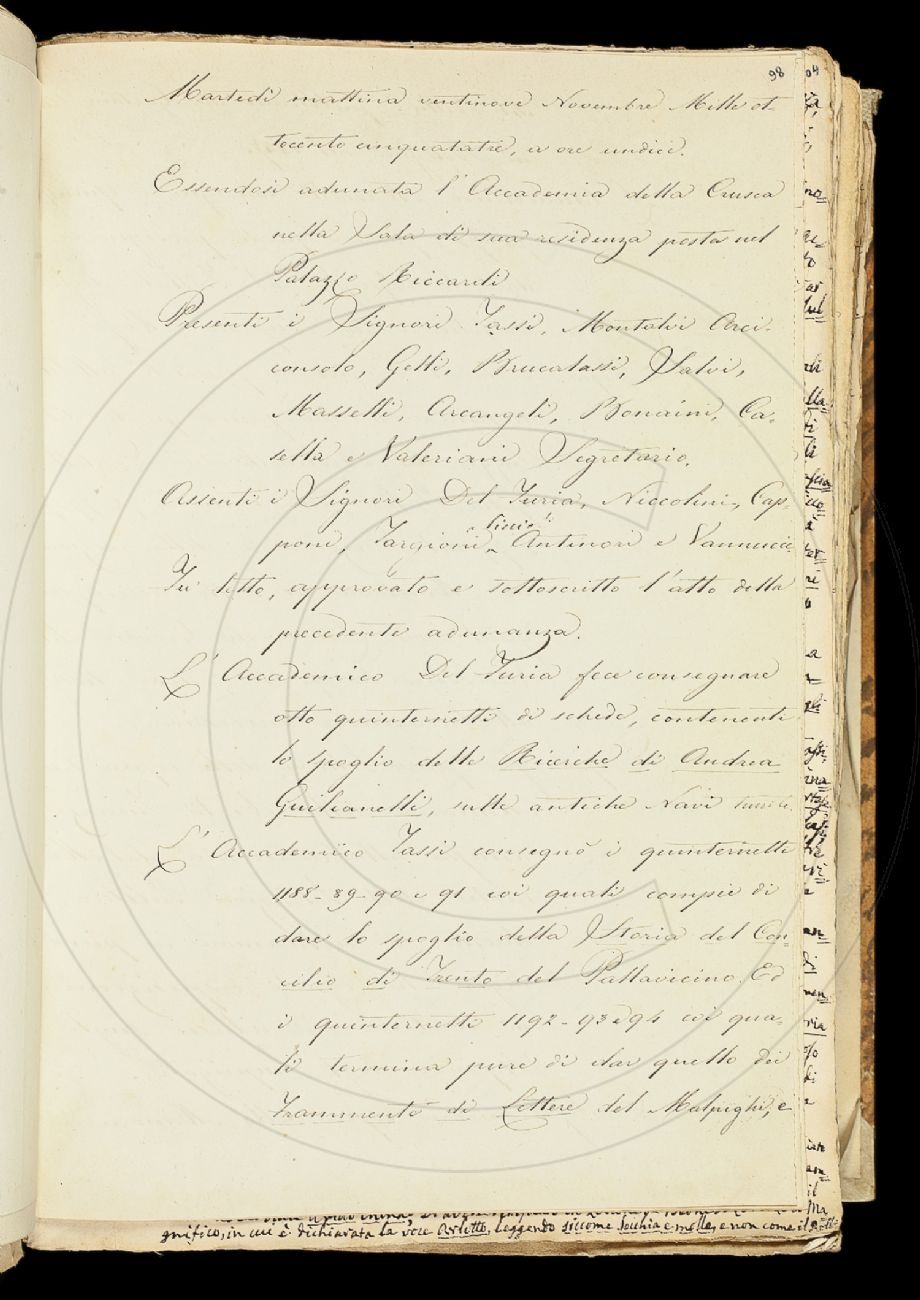 98
Martedì mattina ventinove Novembre Mille ot-
tocento cinquatatre, a ore undici.
Essendosi adunata l'Accademia della Crusca
nella Sala di sua residenza posta nel
Palazzo Riccardi
Presenti i Signori Tassi, Montalvi Arci-
consolo, Gelli, Brucalassi, Salvi,
Masselli, Arcangeli, Bonaini, Ca-
sella e Valeriani Segretario.
Assenti i Signori Del Furia, Niccolini, Cap-
poni, Targioni, Antinori e Vannucci
Fu letto, approvato e sottoscritto l'atto della
precedente adunanza.
L'Accademico Del Furia fece consegnare
otto quinternetti di schede, contenenti
lo spoglio delle Ricerche di Andrea
Guilianelli, sulle antiche Navi
L'Accademico Tassi consegnò i quinternetti
1188-89-90 e 91 coi quali compiè di
dare lo spoglio della Storia del Con-
cilio di Trento del Pallavicino. Ed
i quinternetti 1192-93 e 94 coi qua-
li termina pure di dar quello dei
Frammenti di Lettere del Malpighi, e
gnifico, in cui è dichiarata la voce Arlotto, leggendo siccome Secchia e molle, e non come il